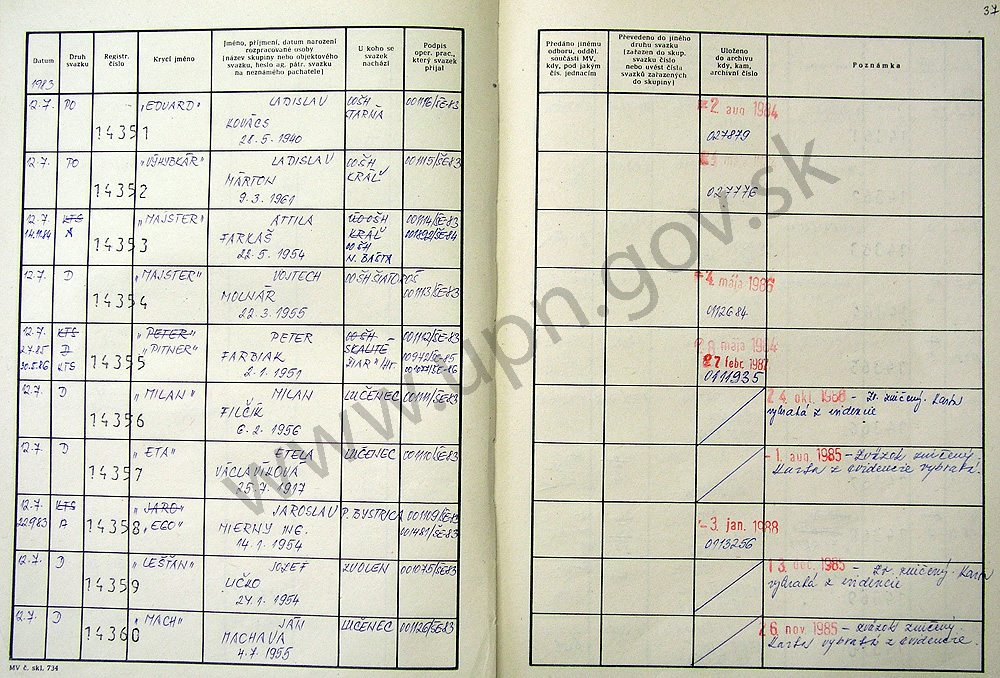 37
Datum
Druh svazku
Registr. číslo
Krycí jméno
Jméno, příjmení, datum narození
rozpracované osoby
(název skupiny nebo objektového
svazku, heslo ag. pátr. svazku
na neznámého pachatele)
U koho se
svazek
nachází
Podpis
oper. prac.,
který svazek
přijal
Předáno jinému
odboru, odděl.
součásti MV,
kdy, pod jakým
čís. jednacím
Převedeno do jiného
druhu svazku
(zařazen do skup.
svazku číslo
nebo uvést čísla
svazků zařazených
do skupiny)
Uloženo
do archivu
kdy, kam,
archivní číslo
Poznámka
1983
12.7. PO 14351 "EDUARD" LADISLAV OOŠH 001116/ŠE-83 2. aug. 1984
KOVÁCS 027879
28.5.1940
12.7. PO 14352 "VÝHYBKÁR" LADISLAV OOŠH 001115/ŠE-83
MÁRTON KRÁĽ 027776
9.3.1961
12.7. KTS 14353 "MAJSTER" ATTILA OOŠH 001114/ŠE-83
14.11.84 A FARKAŠ KRÁĽ
22.5.1954 OOŠH
N. BAŠTA
12.7. D 14354 "MAJSTER" VOJTECH OOŠH ŠIATOROŠ 4. mája 1986
MOLNÁR 001113/ŠE-83 0112684
22.3.1955
12.7. KTS 14355 "PETER" PETER OOŠH 001112/ŠE-83
2.7.85 D "PITNER" FARBIAK SKALITÉ 27 febr. 1987
30.5.86 KTS 2.1.1951 0111935
12.7. D 14356 "MILAN" MILAN LUČENEC 001111/ŠE-83 24. okt. 1988 - Zv. zničený. Karta
FILČÍK vybratá z evidencie
6.2.1956
12.7. D 14357 "ETA" ETELA LUČENEC 001110/ŠE-83 -1. aug. 1985 - Zväzok zničený.
VÁCLAVÍKOVÁ Karta z evidencie vybratá.
25.7.1917
12.7. KTS 14358 "JARO" JAROSLAV P. BYSTRICA 001109/ŠE-83 -3. jan. 1988
22.9.83 A "EGO" MIERNY ING. 001481/ŠE-83 0113256
14.1.1954
12.7. D 14359 "LEŠŤAN" JOZEF ZVOLEN 001075/ŠE-83 13. dec. 1985 - Zv. zničený. Karta
UČKO vybratá z evidencie
24.1.1954
12.7. D 14360 "MACH" JÁN LUČENEC 001126/ŠE-83 26. nov. 1985 - Zväzok zničený.
MACHAVA Karta vybratá z evidencie.
4.7.1955
MV č. skl. 734
www.upn.gov.sk